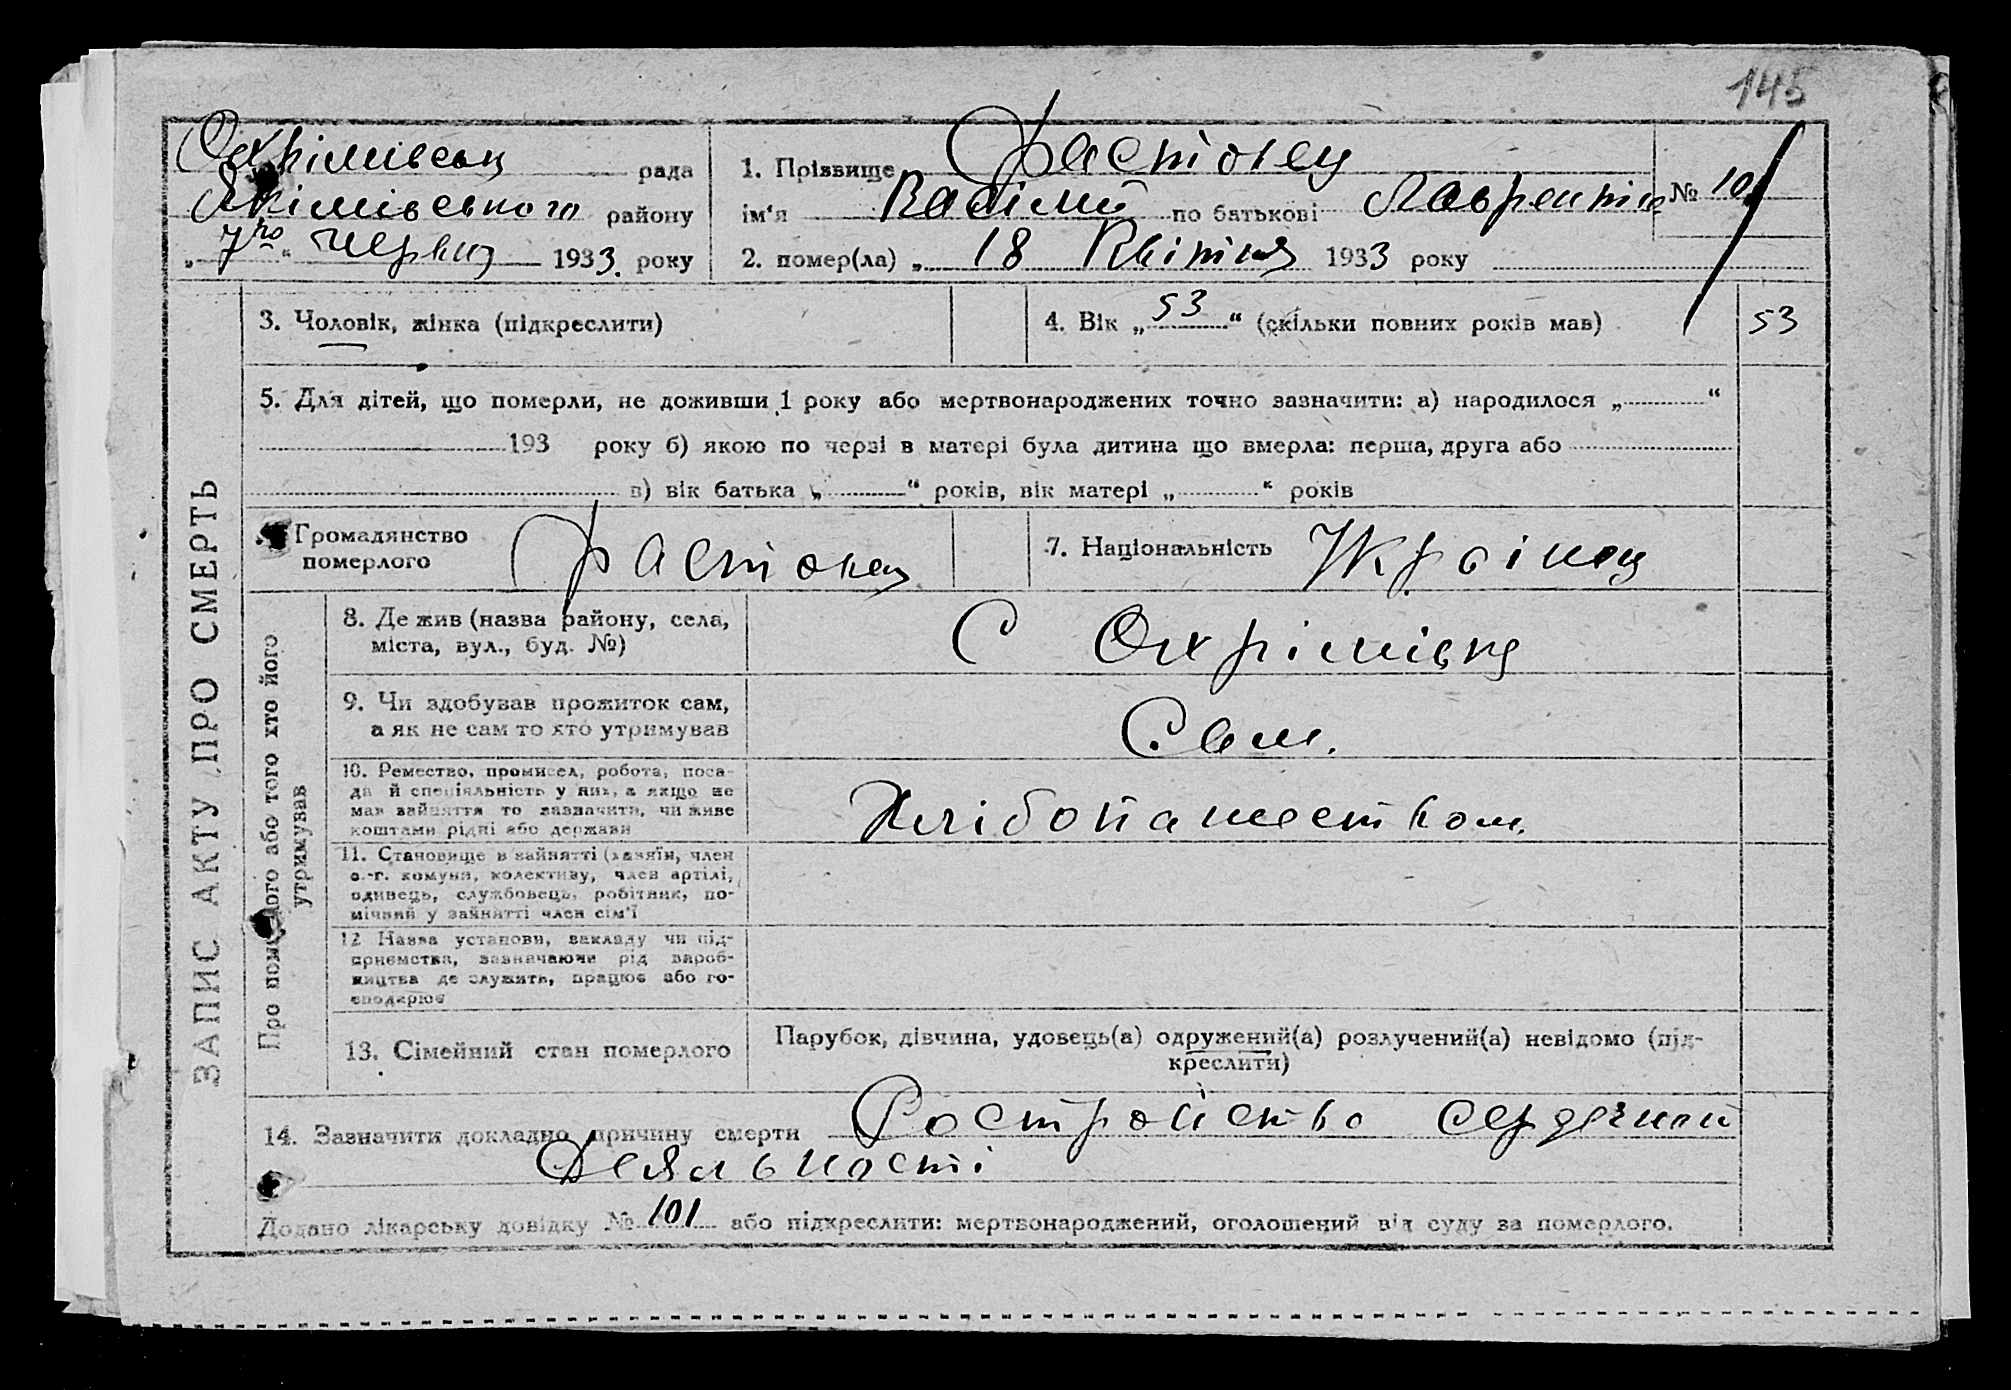 145
Охрімівськ рада
Якімівського району
„7го“ червня 1933. року
1. Прізвище Фастовец
ім'я по батькові Лаврентіє № 101
2. помер(ла) „ 18 Квітня 1933 року
3. Чоловік, жінка (підкреслити)
4. Вік „53“ (скільки повних років мав) 53
5. Для дітей, що померли, не доживши 1 року або мертвонароджених точно зазначити: а) народилося „ “
193 року б) якою по черзі в матері була дитина що вмерла: перша, друга або
в) вік батька „ “ років, вік матері „ “ років
Громадянство
померлого Фастовец
7. Національність Украінец
ЗАПИС АКТУ ПРО СМЕРТЬ
Про померлого або того хто його
утримував
8. Де жив (назва району, села,
міста, вул., буд. №) С Охрімівка
9. Чи здобував прожиток сам,
а як не сам то хто утримував Сам.
10. Ремество, промисел, робота, поса-
да й спеціяльність у них, а якщо не
мав зайняття то зазначити, чи живе
коштами рідні або держави
Хлібопашеством.
11. Становище в зайнятті (хазяїн, член
с.-г. комуни, колективу, член артілі,
одинець, службовець, робітник, по-
мічний у зайнятті член сім'ї
12 Назва установи, закладу чи під-
приємства, зазначаючи рід вироб-
ництва де служить, працює або го-
сподарює
13. Сімейний стан померлого
Парубок, дівчина, удовець(а) одружений(а) розлучений(а) невідомо (під-
креслити)
14. Зазначити докладно причину смерти Ростройство сердечной
Деяльності
Додано лікарську довідку № 101 або підкреслити: мертвонароджений, оголошений від суду за померлого.